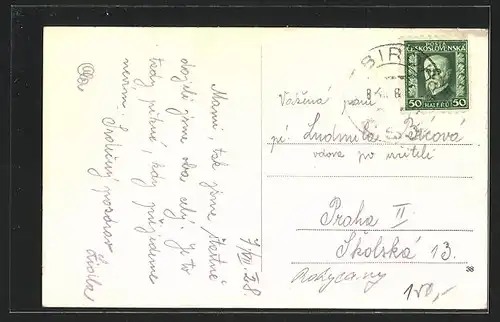 Mami, tak jsme šťastně
dojeli jsme oba celí. Je to
tady pěkné, kdy přijedeme
nevím. Srdečný pozdrav
Lidla
7/VII. 28.
POŠTA
ČESKOSLOVENSKÁ
50 HALÉŘŮ 50
BIR
Vážená paní
pí Ludmila
vdova po učiteli
Praha II.
Školská 13.
Rokycany
38
100,-